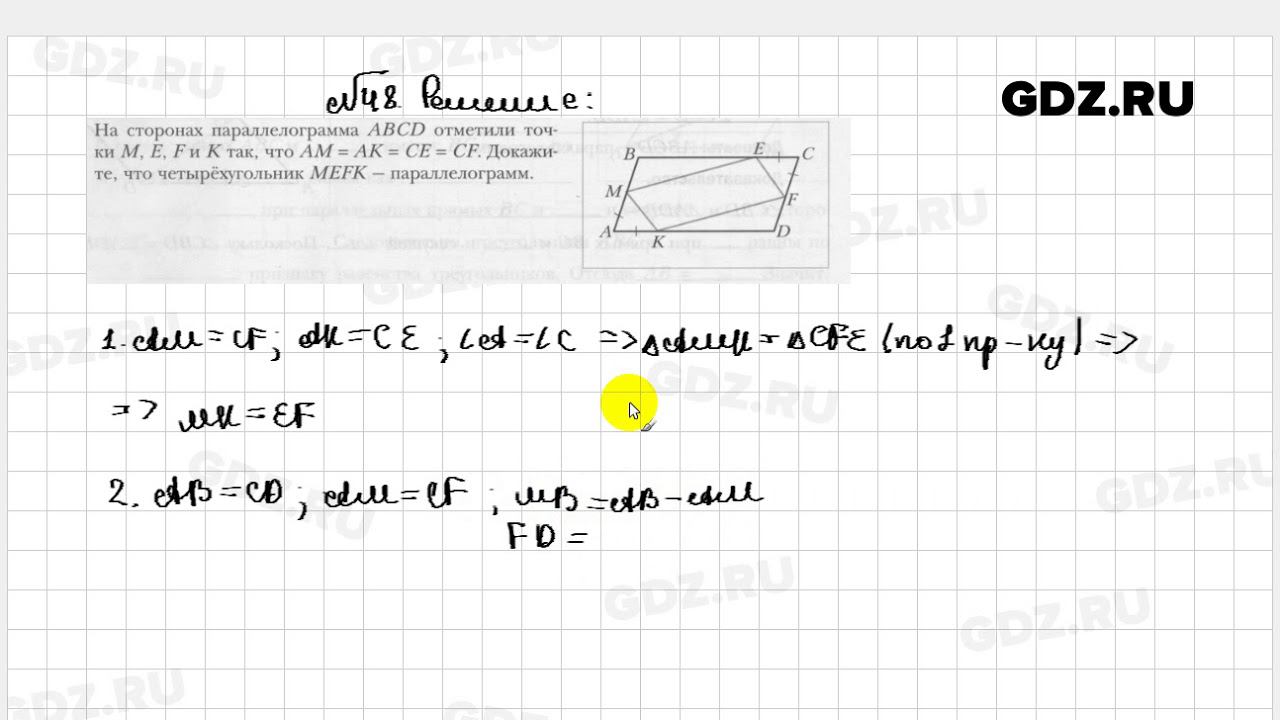 GDZ.RU
№48. Решение:
На сторонах параллелограмма ABCD отметили точ-
ки M, E, F и K так, что AM = AK = CE = CF. Докажи-
те, что четырёхугольник MEFK – параллелограмм.
B E C
M F
A K D
1. AM = CF; AK = CE; ∠A = ∠C => △AMK = △CFE (по 1 пр-ку) =>
=> MK = EF
2. AB = CD; AM = CF; MB = AB - AM
FD =